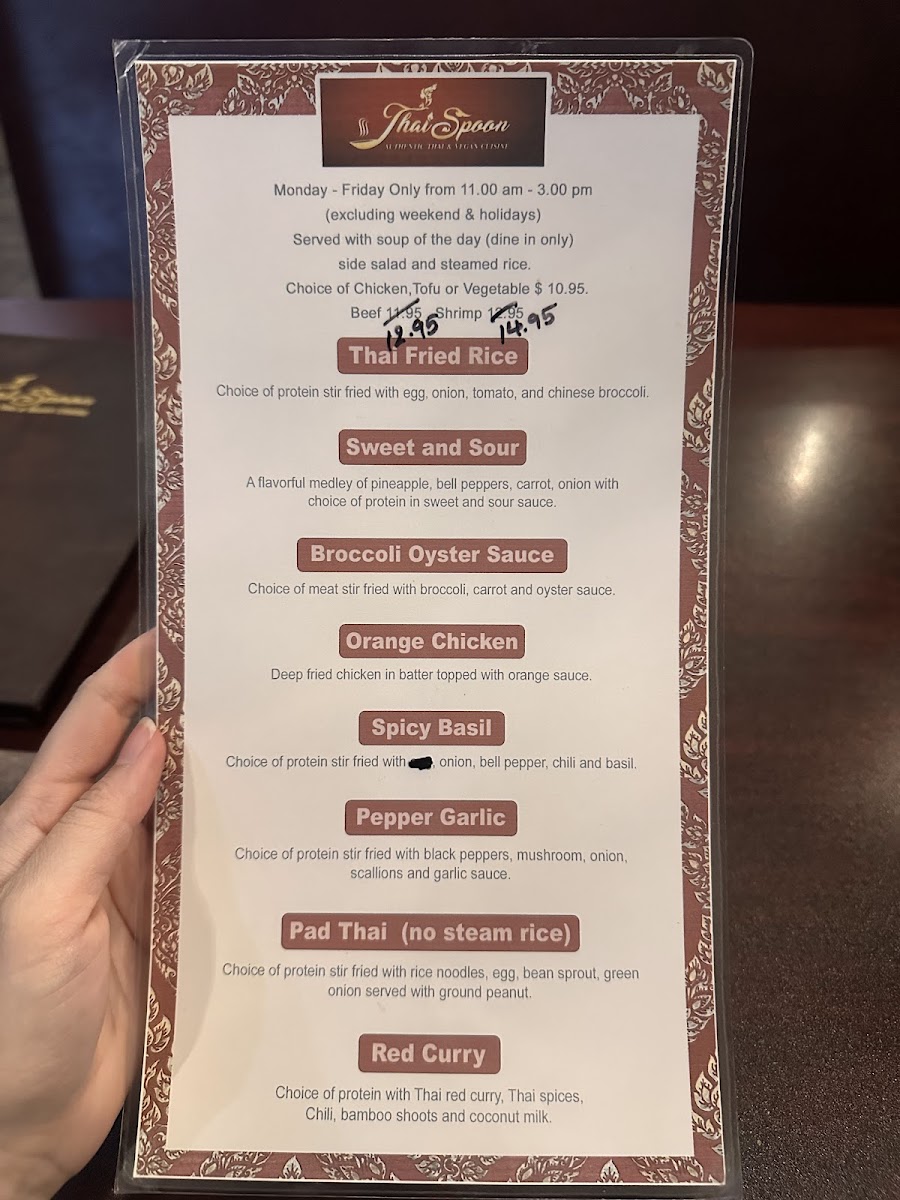 Thai Spoon
AUTHENTIC THAI & VEGAN CUISINE
Monday - Friday Only from 11.00 am - 3.00 pm
(excluding weekend & holidays)
Served with soup of the day (dine in only)
side salad and steamed rice.
Choice of Chicken,Tofu or Vegetable $ 10.95.
Beef 11.95 Shrimp 12.95
12.95 14.95
Thai Fried Rice
Choice of protein stir fried with egg, onion, tomato, and chinese broccoli.
Sweet and Sour
A flavorful medley of pineapple, bell peppers, carrot, onion with
choice of protein in sweet and sour sauce.
Broccoli Oyster Sauce
Choice of meat stir fried with broccoli, carrot and oyster sauce.
Orange Chicken
Deep fried chicken in batter topped with orange sauce.
Spicy Basil
Choice of protein stir fried with , onion, bell pepper, chili and basil.
Pepper Garlic
Choice of protein stir fried with black peppers, mushroom, onion,
scallions and garlic sauce.
Pad Thai (no steam rice)
Choice of protein stir fried with rice noodles, egg, bean sprout, green
onion served with ground peanut.
Red Curry
Choice of protein with Thai red curry, Thai spices,
Chili, bamboo shoots and coconut milk.